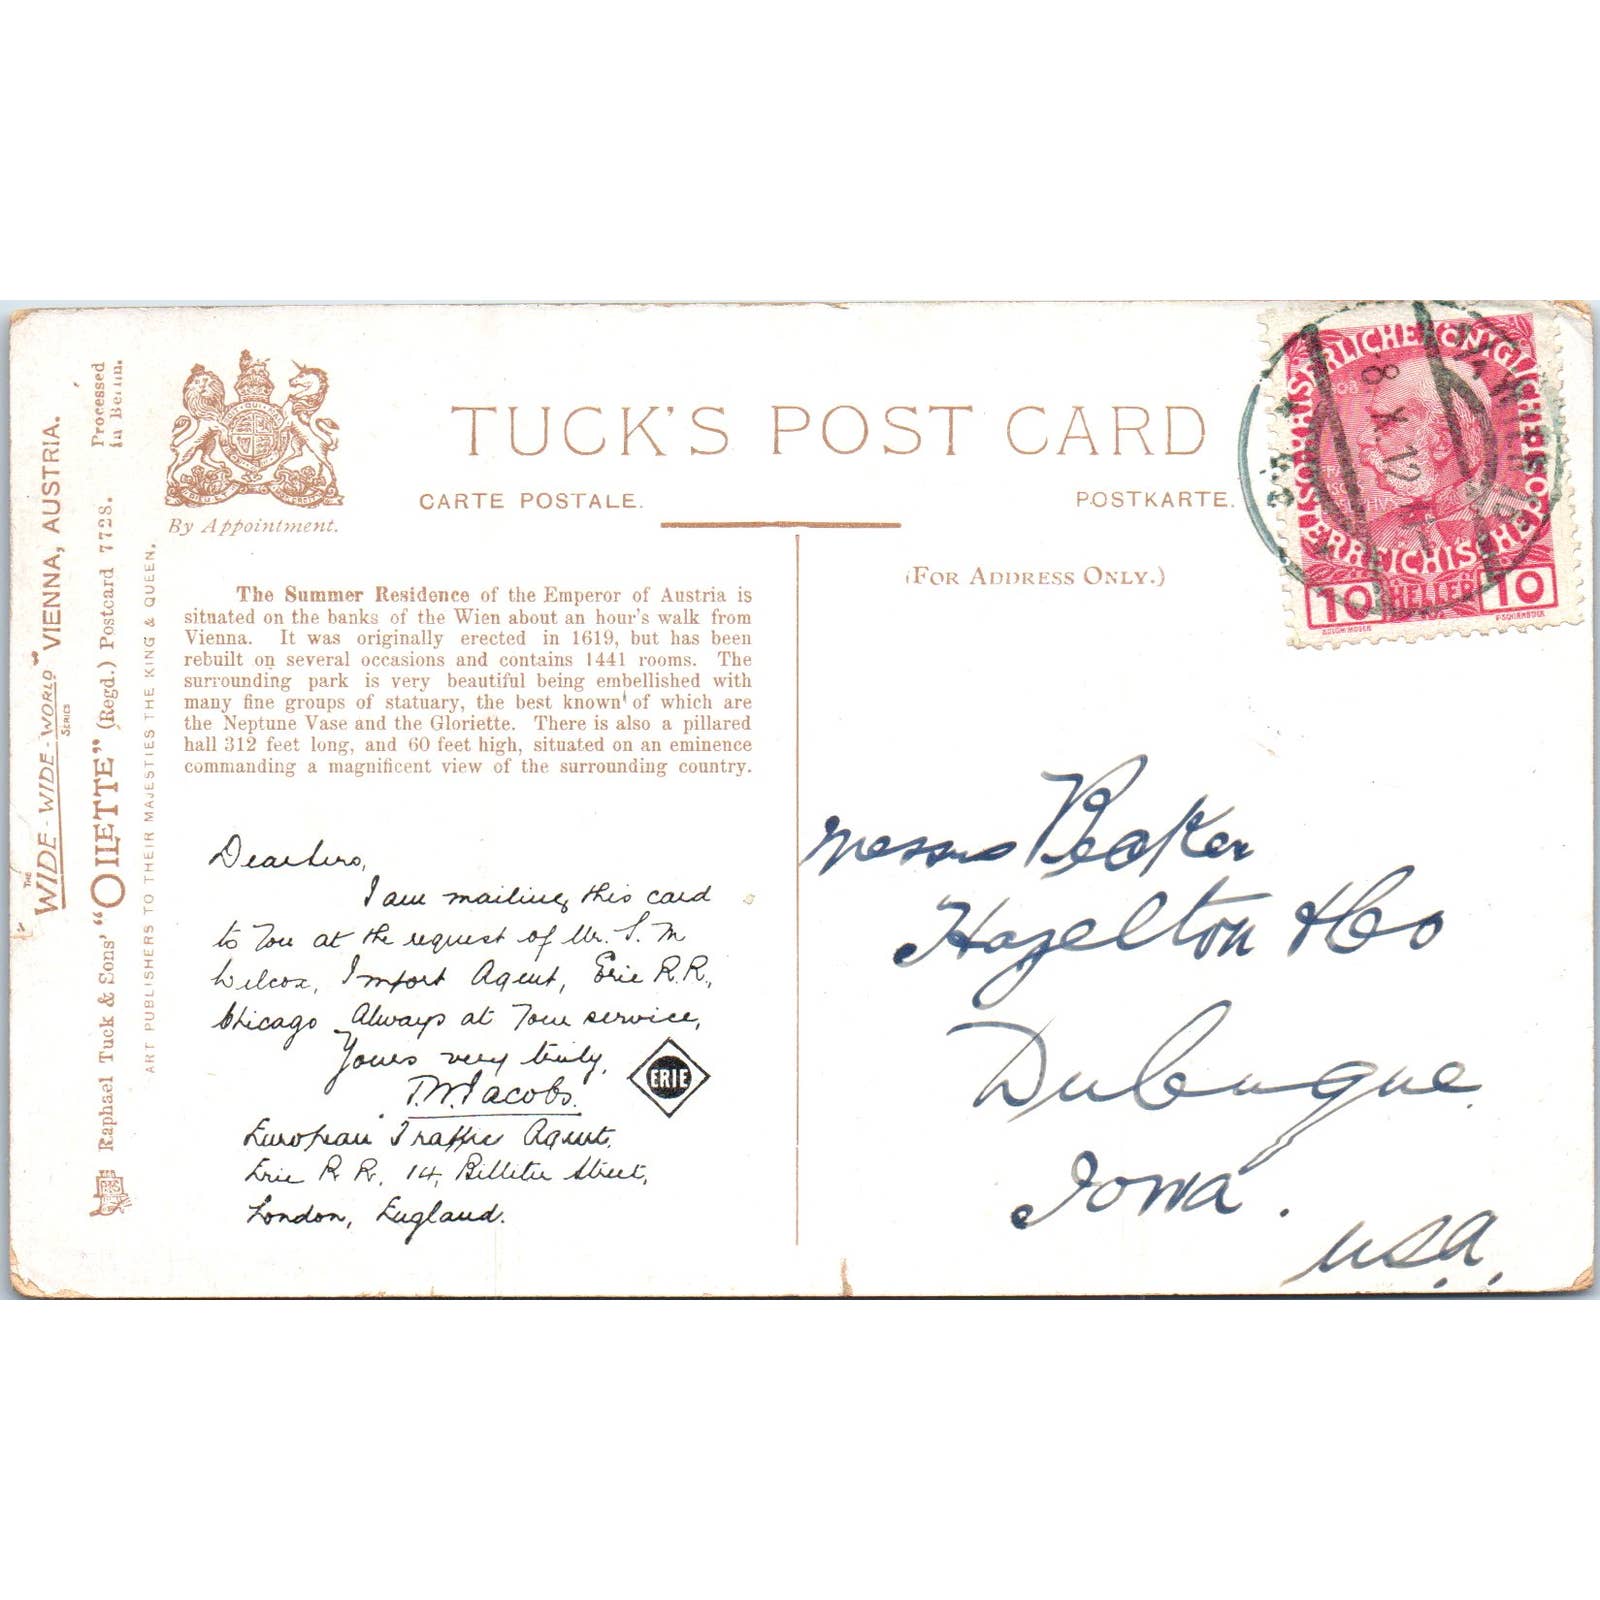 THE
WIDE-WIDE-WORLD" VIENNA, AUSTRIA.
SERIES
Raphael Tuck & Sons' "OILETTE" (Regd.) Postcard 7728.
Processed
in Berlin.
ART PUBLISHERS TO THEIR MAJESTIES THE KING & QUEEN.
By Appointment.
TUCK'S POST CARD
CARTE POSTALE.
POSTKARTE.
(FOR ADDRESS ONLY.)
The Summer Residence of the Emperor of Austria is
situated on the banks of the Wien about an hour's walk from
Vienna. It was originally erected in 1619, but has been
rebuilt on several occasions and contains 1441 rooms. The
surrounding park is very beautiful being embellished with
many fine groups of statuary, the best known of which are
the Neptune Vase and the Gloriette. There is also a pillared
hall 312 feet long, and 60 feet high, situated on an eminence
commanding a magnificent view of the surrounding country.
Dear Sirs,
I am mailing this card
to You at the request of Mr. S. M
Wilcox, Import Agent, Erie R.R.,
Chicago Always at Your service,
Yours very truly,
T.W. Jacobs.
ERIE
European Traffic Agent,
Erie R R, 14, Billiter Street,
London, England.
KAISERLICHE KÖNIGLICHE
OESTERREICHISCHE POST
10 HELLER 10
8 X 12
Messrs Becker
Hazelton & Co
Dubuque
Iowa.
USA.